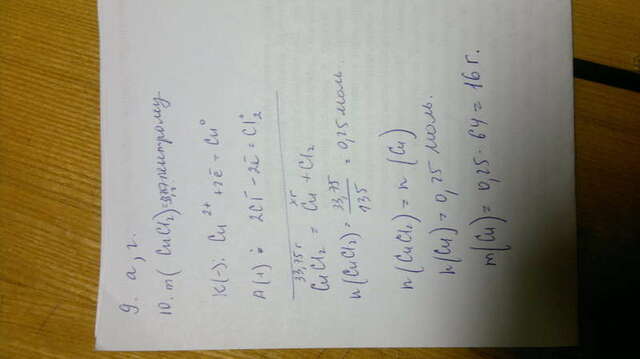 9. а, г.
10. m(CuCl₂)=
K(-): Cu²⁺ + 2ē = Cu⁰
A(+): 2Cl⁻ - 2ē = Cl₂⁰
33,75 г xг
CuCl₂ = Cu + Cl₂
n(CuCl₂) = 33,75/135 = 0,25 моль.
n(CuCl₂) = n(Cu)
n(Cu) = 0,25 моль.
m(Cu) = 0,25 · 64 = 16 г.